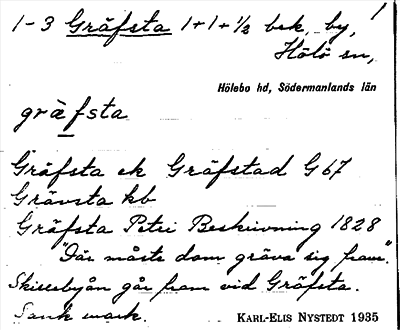 1-3 Gräfsta 1+1+1/2 bsk, by, 1
Hölö sn,
Hölebo hd, Södermanlands län
gräfsta
Gräfsta ek Gräfstad G67
Grävsta kb
Gräfsta Petri Beskrivning 1828
"Där måste dom gräva sig fram".
Skillebyån går fram vid Gräfsta.
Sank mark.
KARL-ELIS NYSTEDT 1935